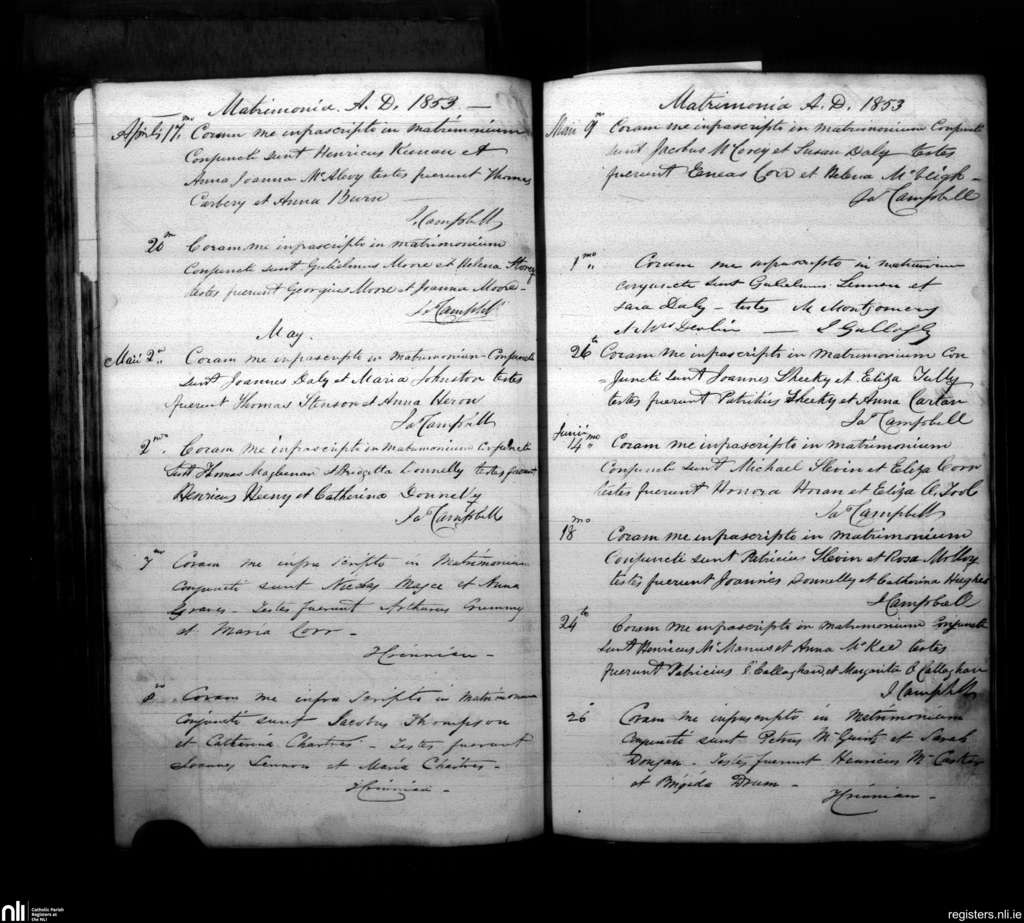 Matrimonia A. D. 1853 —
Aprilis 17mo Coram me infrascripto in matrimonium
Conjuncti sunt Henricus Keenan et
Anna Joanna McAlroy testes fuerunt Thomas
Carbery et Anna Burn
J. Campbell
20m Coram me infrascripto in matrimonium
Conjuncti sunt Gulielmus Moore et Helena
testes fuerunt Georgius Moore et Joanna Moore -
Ja Campbell
May.
Maii 2o Coram me infrascripto in matrimonium Conjuncti
sunt Joannes Daly et Maria Johnston testes
fuerunt Thomas et Anna Heron
Ja Campbell
2o Coram me infrascripto in matrimonium Conjuncti
sunt Thomas Bridgetta Donnelly testes fuerunt
Henricus Heeny et Catherina Donnelly
Ja Campbell
7mo Coram me infra Scripto in Matrimonium
Conjuncti sunt Magee et Anna
Graves - Testes fuerunt Artharus
et Maria Corr -
Coram me infra Scripto in Matrimonium
Conjuncti sunt Jacobus Thompson
et Catherina Chartres - Testes fuerunt
Joannes Lennon et Maria Chartres -
Matrimonia A. D. 1853
Maii 9o Coram me infrascripto in matrimonium Conjuncti
sunt Jacobus McCovey et Susan Daly testes
fuerunt Eneas Corr et Helena
Ja Campbell
1mo Coram me infrascripto in matrimonium
sunt Gulielmus Lennon et
Sara Daly - testes M Montgomery
et Mrs Devlin —
26to Coram me infrascripto in matrimonium Con
=juncti sunt Joannes Sheeky et Eliza
testes fuerunt Patritius Sheeky et Anna Cartan
Ja Campbell
Junii 14mo Coram me infrascripto in matrimonium
Conjuncti sunt Michael Slevin et Eliza Corr
testes fuerunt Honora Horan et Eliza O'Tool
Ja Campbell
18mo Coram me infrascripto in matrimonium
Conjuncti sunt Patricius Slevin et Rosa McIlroy
testes fuerunt Joannes Donnelly et Catherina Hughes
J Campbell
24to Coram me infrascripto in matrimonium Conjuncti
sunt Henricus McManus et Anna McKee testes
fuerunt Patricius O'Callaghan et Margarita O Callaghan
J Campbell
26 Coram me infrascripto in Matrimonium
Conjuncti sunt Petrus McGuirk et Sarah
Dougan - Testes fuerunt Henricus
et Brigida Drum -
nli
Catholic Parish
Registers at
the NLI
registers.nli.ie